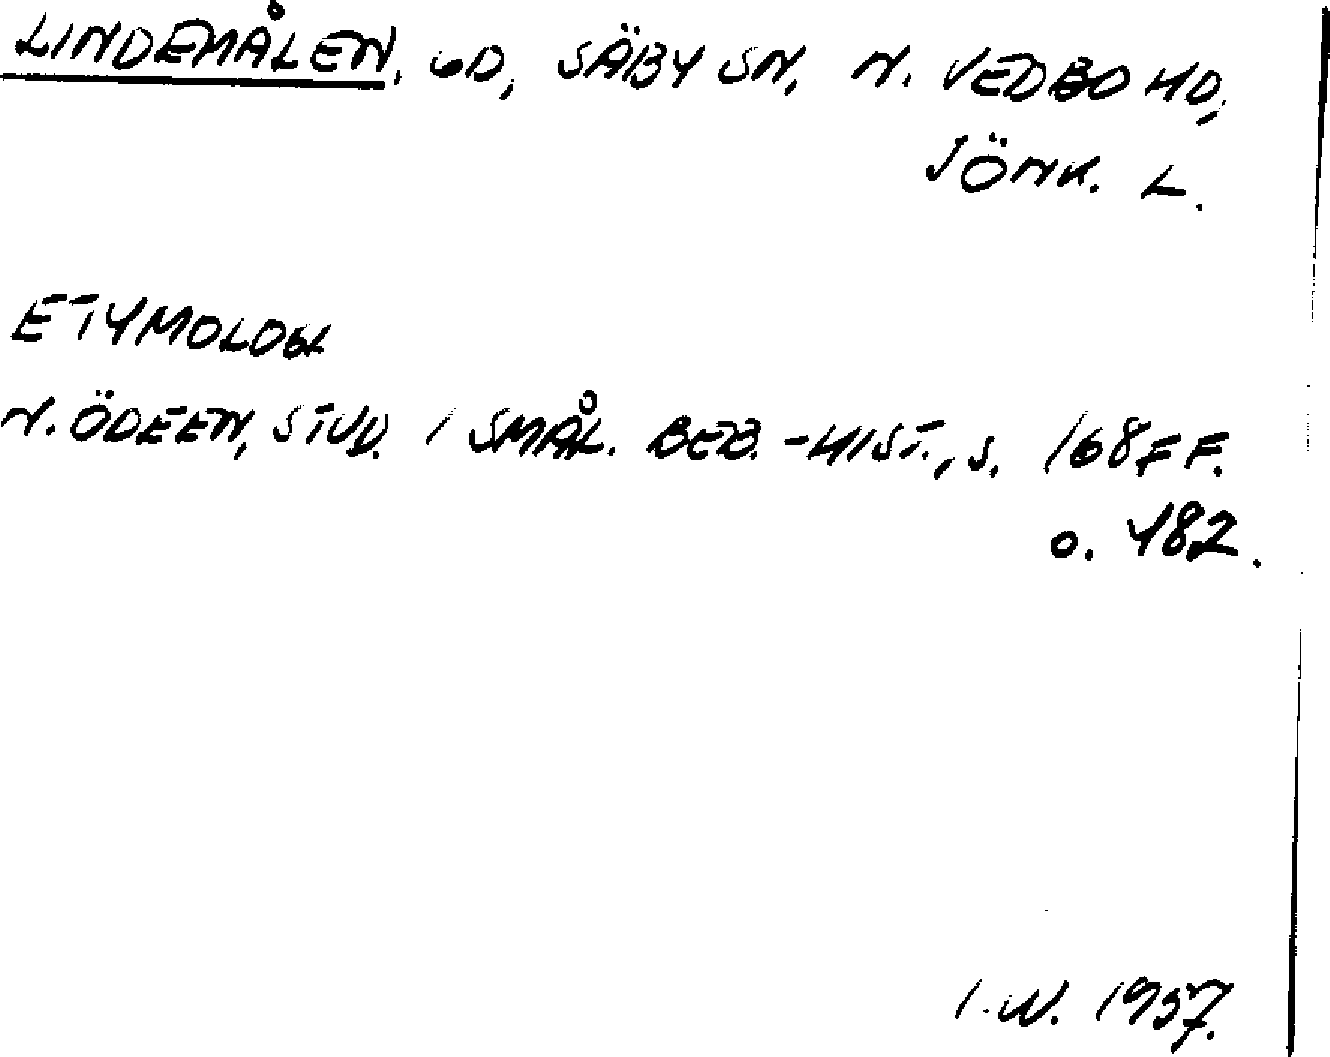 LINDEMÅLEN, GD, SÄBY SN, N. VEDBO HD,
JÖNK. L.
ETYMOLOGI
N. ÖDEEN, STUD. I SMÅL. BEB.-HIST., S. 168 FF.
O. 182.
I. W. 1937.